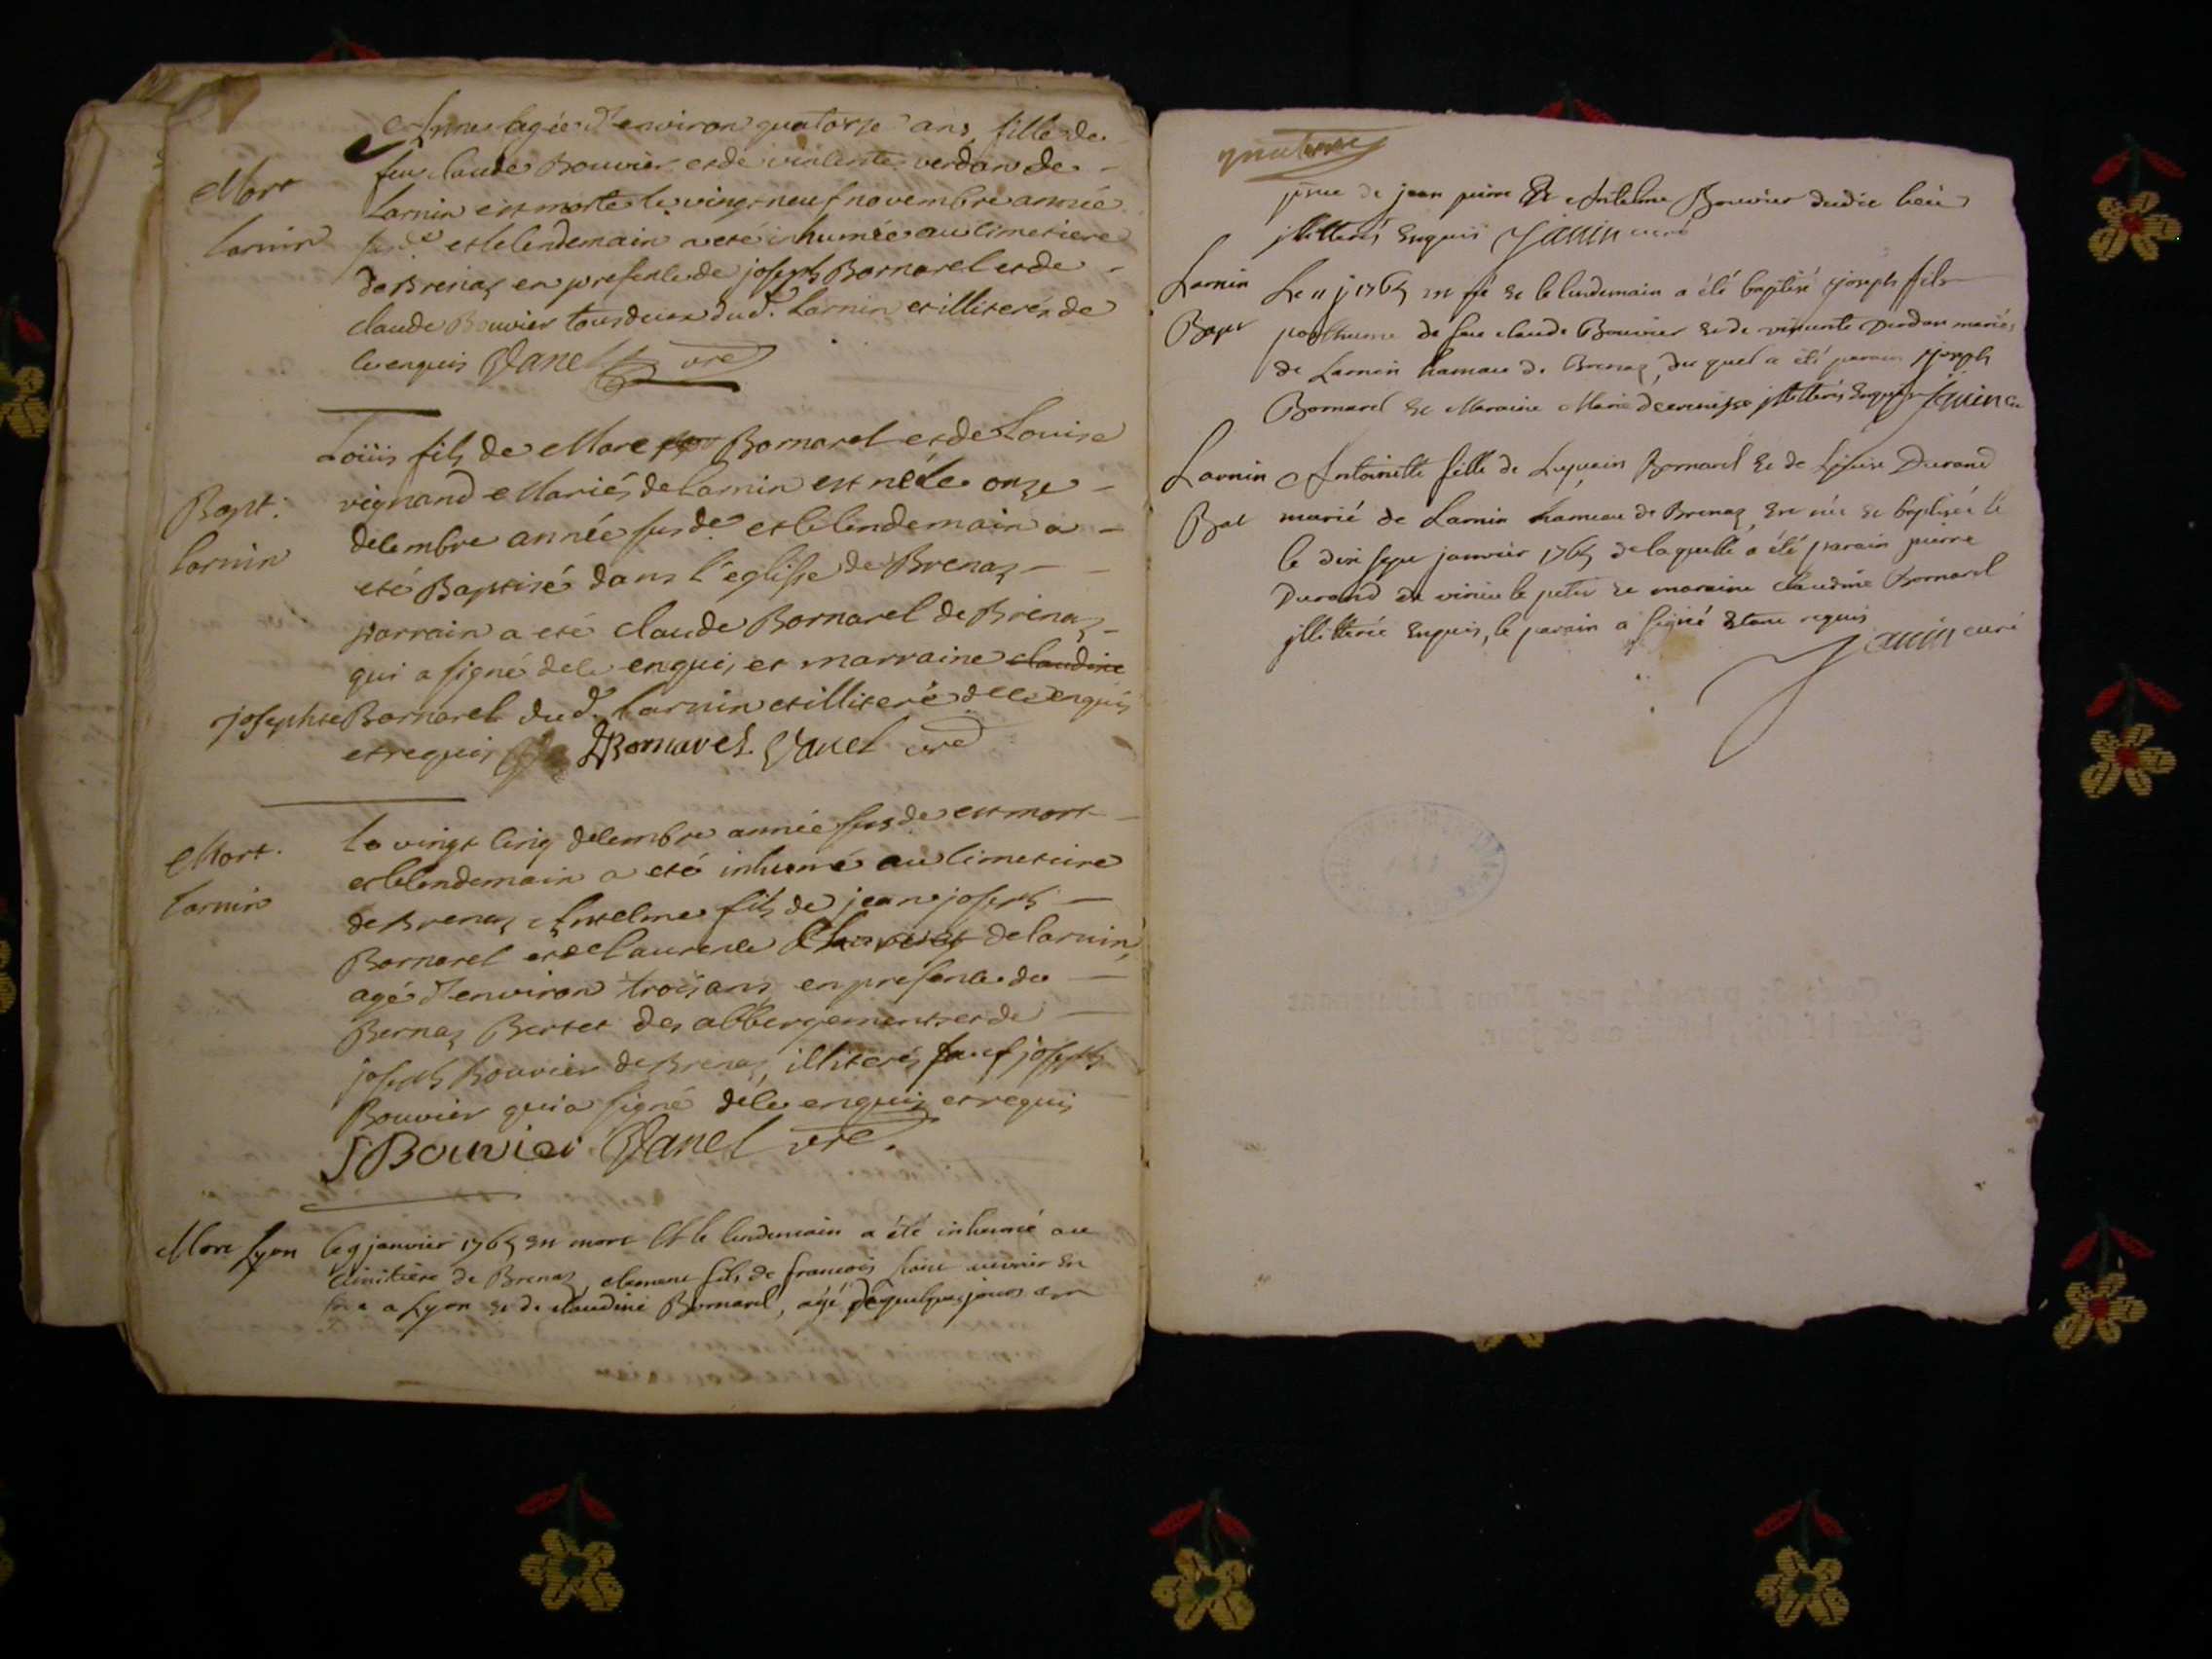 Anne agée d'environ quatorse ans, fille de
feu claude Bouvier et de vinlente verdan de
Mort
Larnin est morte le vingt neuf novembre année
Larnin
sus.de et le lendemain a eté inhumée au limetiere
de Brenaz en presenle de joseph Bornarel et de
claude Bouvier tous deux dud. Larnin et illiterés de
le enquis Janel curé
Loüis fils de Marc Bornarel et de Louise
vignand Mariés de Larnin est né le onze
Bapt.
delembre année sus.de et le lendemain a
Larnin
eté Baptisé dans l'eglise de Brenaz
parrain a eté claude Bornarel de Brenaz
qui a signé de le enquis et marraine claudine
josephte Bornarel dud. Larnin et illiteré de le enquis
et requis Bornarel. Janel curé
Mort.
le vingt linq delembre année susde est mort
et le lendemain a eté inhumé au limetiere
Larnin
de Brenaz Antelme fils de jean joseph
Bornarel et de laurenle de larnin,
agé d'environ trois ans en presenle de
Bernaz Bertet des abbergements et de
joseph Bouvier de Brenaz, illiterés sauf joseph
Bouvier qui a signé de le enquis et requis
J Bouvier Janel curé
Mort Lyon le 9 janvier 1765 est mort et le lendemain a été inhumé au
cimitière de Brenaz, clement fils de francois
a Lyon et de claudine Bornarel, agé de quelques jours en
pnce de jean pierre et Antelme Bouvier dudit lieu
jllitterés Enquis Janin curé
Larnin
Le 11 j 1765 est né et le lendemain a été baptisé joseph fils
Bapt
posthume de feu claude Bouvier et de vincente verdan mariés
de Larnin hameau de Brenaz, du quel a été parain joseph
Bornarel et Maraine Marie jllitterés Enquis Janin cu
Larnin
Antoinette fille de Bornarel et de Louise Durand
Bat
marié de Larnin hameau de Brenaz, est née et baptisée le
le dix sept janvier 1765 de laquelle a été parain pierre
Durand de virieu le petit et maraine claudine Bornarel
jllitterée Enquis, le parain a signé Etant requis
Janin curé